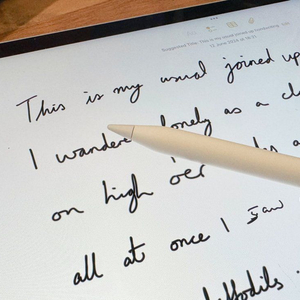 Suggested Title: This is my usual joined up handwriting
This is my usual joined up
I wandere lonely as a cl
on high o'er
all at once I saw
daffodils